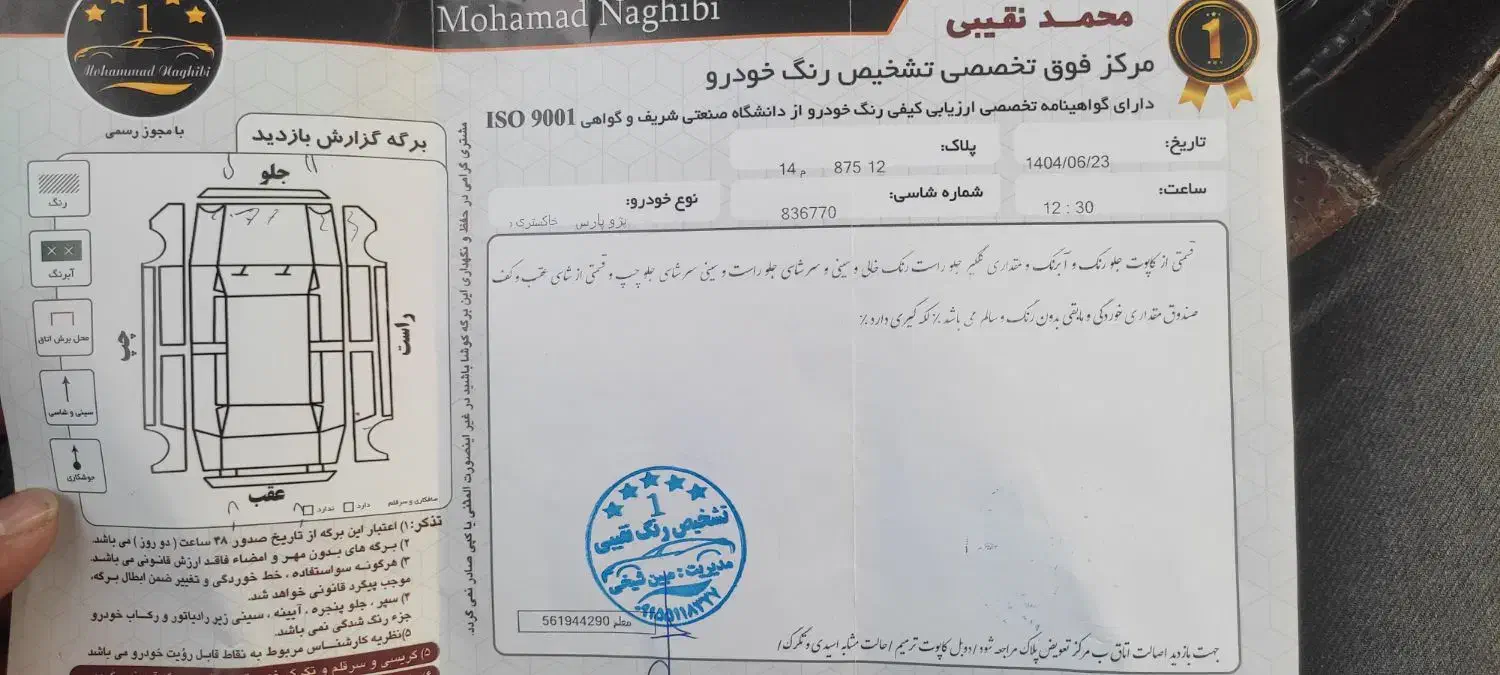 Mohamad Naghibi
محمـد نقیبی
1
مرکز فوق تخصصی تشخیص رنگ خودرو
دارای گواهینامه تخصصی ارزیابی کیفی رنگ خودرو از دانشگاه صنعتی شریف و گواهی ISO 9001
تاریخ: 1404/06/23
پلاک: 12 875 م 14
ساعت: 12 : 30
شماره شاسی: 836770
نوع خودرو: پژو پارس خاکستری
قسمتی از کاپوت جلو رنگ و آبرنگ و مقداری گلگیر جلو راست رنگ خالی و سینی و سرشاسی جلو راست و سینی سرشاسی جلو چپ و قسمتی از شاسی عقب و کف
صندوق مقداری خوردگی و مابقی بدون رنگ و سالم می باشد٪ لکه گیری دارد٪
1
تشخیص رنگ نقیبی
مدیریت: مبین شیخی
معلم 561944290
جهت بازدید اصالت اتاق ب مرکز تعویض پلاک مراجعه شود/دوبل کاپوت ترمیم/حالت مشابه اسیدی و تگرگ/
مشتری گرامی در حفظ و نگهداری این برگه کوشا باشید در غیر اینصورت المثنی یا کپی صادر نمی گردد.
1
Mohammad Naghibi
با مجوز رسمی
برگه گزارش بازدید
جلو
رنگ
آبرنگ
محل برش اتاق
سینی و شاسی
جوشکاری
چپ
راست
عقب
صافکاری و سرقلم دارد ندارد
تذکر: ۱) اعتبار این برگه از تاریخ صدور ۴۸ ساعت ( دو روز ) می باشد.
۲) برگه های بدون مهر و امضاء فاقد ارزش قانونی می باشد.
۳) هرگونه سواستفاده ، خط خوردگی و تغییر ضمن ابطال برگه،
موجب پیگرد قانونی خواهد شد.
۴) سپر ، جلو پنجره ، آیینه ، سینی زیر رادیاتور و رکاب خودرو
جزء رنگ شدگی نمی باشد.
۵) نظریه کارشناس مربوط به نقاط قابل رؤیت خودرو می باشد